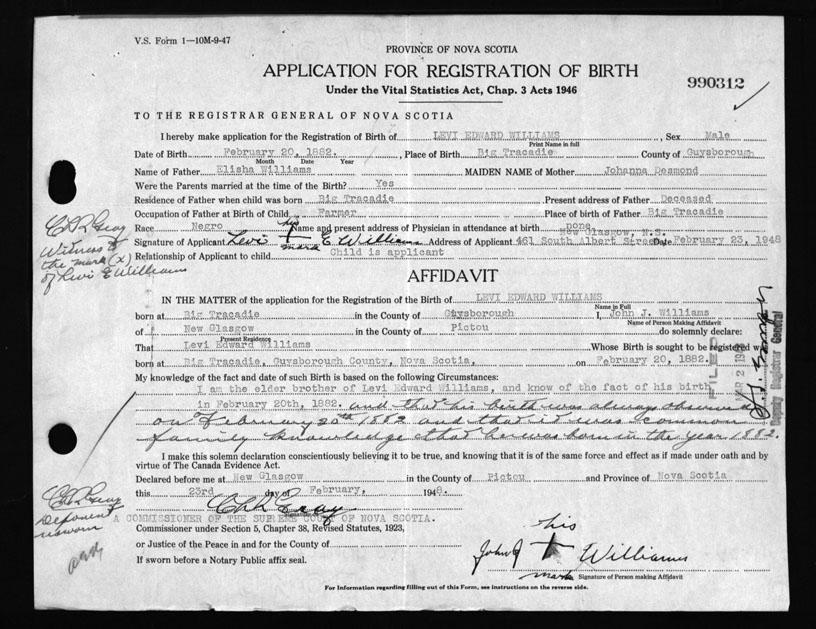 V.S. Form 1—10M-9-47
PROVINCE OF NOVA SCOTIA
APPLICATION FOR REGISTRATION OF BIRTH
990312
Under the Vital Statistics Act, Chap. 3 Acts 1946
TO THE REGISTRAR GENERAL OF NOVA SCOTIA
I hereby make application for the Registration of Birth of LEVI EDWARD WILLIAMS, Sex Male
Print Name in full
Date of Birth February 20, 1882., Place of Birth Big Tracadie County of Guysborough
Month Date Year
Name of Father Elisha Williams MAIDEN NAME of Mother Johanna Desmond
Were the Parents married at the time of the Birth? Yes
Residence of Father when child was born Big Tracadie Present address of Father Deceased
Occupation of Father at Birth of Child Farmer Place of birth of Father Big Tracadie
Race Negro Name and present address of Physician in attendance at birth none
his
New Glasgow, N.S.
Signature of Applicant Levi + E Williams Address of Applicant 461 South Albert Street Date February 23, 1948
mark
Relationship of Applicant to child Child is applicant
Ch L Gray
Witness to
the mark (x)
of Levi E Williams
AFFIDAVIT
IN THE MATTER of the application for the Registration of the Birth of LEVI EDWARD WILLIAMS
Name in Full
born at Big Tracadie in the County of Guysborough I, John J. Williams
Name of Person Making Affidavit
of New Glasgow in the County of Pictou do solemnly declare:
Present Residence
That Levi Edward Williams Whose Birth is sought to be registered was
born at Big Tracadie, Guysborough County, Nova Scotia, on February 20, 1882.
My knowledge of the fact and date of such Birth is based on the following Circumstances:
I am the elder brother of Levi Edward Williams, and know of the fact of his birth
in February 20th, 1882. and that his birth was always observed
on February 20th 1882 and that it was common
family knowledge that he was born in the year 1882.
FILED
MAR 2
Deputy Registrar General
I make this solemn declaration conscientiously believing it to be true, and knowing that it is of the same force and effect as if made under oath and by
virtue of The Canada Evidence Act.
Declared before me at New Glasgow in the County of Pictou and Province of Nova Scotia
this 23rd day of February, 1948.
Ch L Gray
A COMMISSIONER OF THE SUPREME COURT OF NOVA SCOTIA.
Commissioner under Section 5, Chapter 38, Revised Statutes, 1923,
or Justice of the Peace in and for the County of
If sworn before a Notary Public affix seal.
Ch L Gray
Deponent
his
John J + Williams
mark
Signature of Person making Affidavit
For Information regarding filling out of this Form, see instructions on the reverse side.